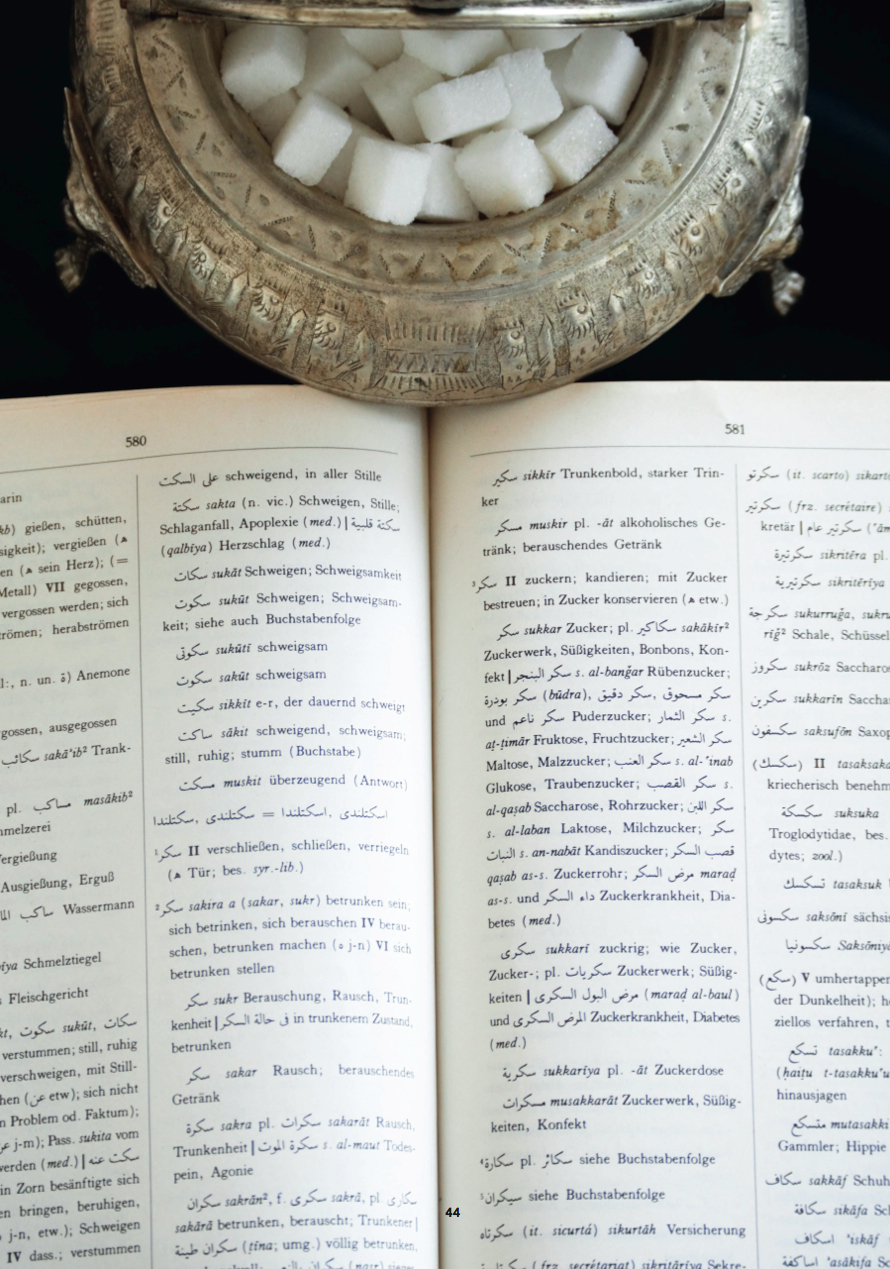 580
arin
kb) gießen, schütten,
sigkeit); vergießen (ه
en (ه sein Herz); (=
Metall) VII gegossen,
vergossen werden; sich
trömen; herabströmen
l:, n. un. ة) Anemone
gossen, ausgegossen
سكائب sakā'ib² Trank-
pl. مساكب masākib²
hmelzerei
Vergießung
Ausgießung, Erguß
ساكب الما Wassermann
īya Schmelztiegel
s Fleischgericht
kt, سكوت sukūt, سكات
verstummen; still, ruhig
verschweigen, mit Still-
hen (عن etw); sich nicht
n Problem od. Faktum);
عن j-m); Pass. sukita vom
werden (med.) | سكت عنه
in Zorn besänftigte sich
en bringen, beruhigen,
j-n, etw.); Schweigen
IV dass.; verstummen
على السكت schweigend, in aller Stille
سكتة sakta (n. vic.) Schweigen, Stille;
Schlaganfall, Apoplexie (med.) | سكتة قلبية
(qalbīya) Herzschlag (med.)
سكات sukāt Schweigen; Schweigsamkeit
سكوت sukūt Schweigen; Schweigsam-
keit; siehe auch Buchstabenfolge
سكوتى sukūtī schweigsam
سكوت sakūt schweigsam
سكيت sikkīt e-r, der dauernd schweigt
ساكت sākit schweigend, schweigsam;
still, ruhig; stumm (Buchstabe)
مسكت muskit überzeugend (Antwort)
اسكتلندى, اسكتلندا = سكتلندى, سكتلندا
¹سكر II verschließen, schließen, verriegeln
(ه Tür; bes. syr.-lib.)
²سكر sakira a (sakar, sukr) betrunken sein;
sich betrinken, sich berauschen IV berau-
schen, betrunken machen (ه j-n) VI sich
betrunken stellen
سكر sukr Berauschung, Rausch, Trun-
kenheit | فى حالة السكر in trunkenem Zustand,
betrunken
سكر sakar Rausch; berauschendes
Getränk
سكرة sakra pl. سكرات sakarāt Rausch,
Trunkenheit | سكرة الموت s. al-maut Todes-
pein, Agonie
سكران sakrān², f. سكرى sakrā, pl. سكارى
sakārā betrunken, berauscht; Trunkener |
سكران طينة (ṭīna; umg.) völlig betrunken,
581
سكير sikkīr Trunkenbold, starker Trin-
ker
مسكر muskir pl. -āt alkoholisches Ge-
tränk; berauschendes Getränk
³سكر II zuckern; kandieren; mit Zucker
bestreuen; in Zucker konservieren (ه etw.)
سكر sukkar Zucker; pl. سكاكير sakākir²
Zuckerwerk, Süßigkeiten, Bonbons, Kon-
fekt | سكر البنجر s. al-banǧar Rübenzucker;
سكر بودرة (būdra), سكر دقيق, سكر مسحوق
und سكر ناعم Puderzucker; سكر الثمار s.
aṯ-ṯimār Fruktose, Fruchtzucker; سكر الشعير
Maltose, Malzzucker; سكر العنب s. al-'inab
Glukose, Traubenzucker; سكر القصب s.
al-qaṣab Saccharose, Rohrzucker; سكر اللبن
s. al-laban Laktose, Milchzucker; سكر
النبات s. an-nabāt Kandiszucker; قصب السكر
qaṣab as-s. Zuckerrohr; مرض السكر maraḍ
as-s. und داء السكر Zuckerkrankheit, Dia-
betes (med.)
سكرى sukkarī zuckrig; wie Zucker,
Zucker-; pl. سكريات Zuckerwerk; Süßig-
keiten | مرض البول السكرى (maraḍ al-baul)
und المرض السكرى Zuckerkrankheit, Diabetes
(med.)
سكرية sukkarīya pl. -āt Zuckerdose
مسكرات musakkarāt Zuckerwerk, Süßig-
keiten, Konfekt
⁴سكارة pl. سكائر siehe Buchstabenfolge
⁵سيكران siehe Buchstabenfolge
سكرتاه (it. sicurtá) sikurtāh Versicherung
سكرتارية (frz. secrétariat) sikritārīya Sekre-
سكرتو (it. scarto) sikart
سكرتير (frz. secrétaire)
kretär | سكرتير عام ('ām
سكرتيرة sikritēra pl.
سكرتيرية sikritērīya
سكرجة sukurruǧa, sukru
rīǧ² Schale, Schüssel
سكروز sukrōz Saccharos
سكرين sukkarīn Saccha
سكسفون saksufōn Saxop
(سكسك) II tasaksaka
kriecherisch benehm
سكسكة suksuka
Troglodytidae, bes.
dytes; zool.)
تسكسك tasaksuk
سكسونى saksōnī sächsis
سكسونيا Saksōniyā
(سكع) V umhertappen
der Dunkelheit); he
ziellos verfahren, t
تسكع tasakku':
(ḫaiṭu t-tasakku'
hinausjagen
متسكع mutasakki
Gammler; Hippie
سكاف sakkāf Schuh
سكافة sikāfa Sch
اسكاف 'iskāf
اساكفة 'asākifa S
44